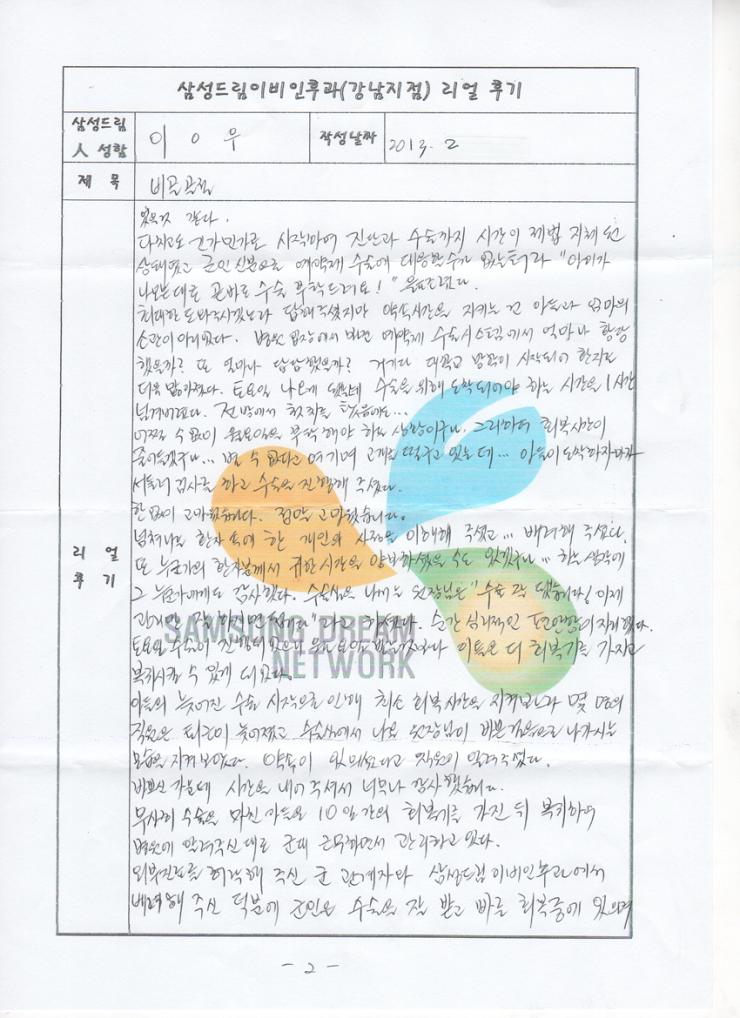 삼성드림이비인후과(강남지점) 리얼 후기
삼성드림人 성함
이 ㅇ 우
작성날짜
2013. 2
제 목
비골골절
리 얼
후 기
있을것 같다.
다치고도 긴가민가로 시작하여 진단과 수술까지 시간이 제법 지체 된
상태였고 군인신분으로 예약제 수술에 대응할수가 없을터라 "아이가
나오는대로 곧바로 수술 부탁드려요!" 읊조렸다.
최대한 도와주시겠노라 답해주셨지만 약속시간을 지키는 건 아들과 엄마의
소관이 아니었다. 병원 입장에서 보면 예약제 수술시스템에서 얼마나 황당
했을까? 또 얼마나 답답했을까? 거기다 대학교 방학이 시작되어 환자는
더욱 많아졌다. 토요일 나오게 됐는데 수술을 위해 도착되어야 하는 시간을 1시간
넘겨버렸다. 전방에서 첫차를 탔음에도...
어쩔 수 없이 월요일을 부탁해야 하는 상황이구나. 그리하여 회복시간이
줄어들겠구나... 별 수 없다고 여기며 고개를 떨구고 있는데... 아들이 도착하자마자
서둘러 검사를 하고 수술을 진행해 주셨다.
한없이 고마웠습니다. 정말 고마웠습니다.
넘쳐나는 환자 속에 한 개인의 사정을 이해해 주셨고... 배려해 주셨다.
또 누군가의 환자분께서 귀한시간을 양보하셨을 수도 있겠구나... 하는 생각에
그 누군가에게도 감사했다. 수술실을 나서는 원장님은 "수술 잘 됐습니다! 이제
관리만 잘 하시면 됩니다" 라고 하셨다. 순간 심리적인 편안함이 자리했다.
토요일 수술이 진행되었으니 월요일 했을때보다 이틀은 더 회복기를 가지고
복귀시킬 수 있게 되었다.
SAMSUNG DREAM
NETWORK
아들의 늦어진 수술 시작으로 인해 최소 회복시간을 지켜보느라 몇 명의
직원은 퇴근이 늦어졌고 수술실에서 나온 원장님이 바쁜걸음으로 나가시는
모습을 지켜보았다. 약속이 있으셨다고 직원이 알려주었다.
바쁘신 가운데 시간을 내어 주셔서 너무나 감사했습니다.
무사히 수술을 마친 아들은 10일간의 회복기를 가진 뒤 복귀하여
병원에 알려주신 대로 군대 근무하면서 관리하고 있다.
외부진료를 허락해 주신 군 관계자와 삼성드림이비인후과에서
배려해 주신 덕분에 군인은 수술을 잘 받고 빠른 회복중에 있으며
- 2 -